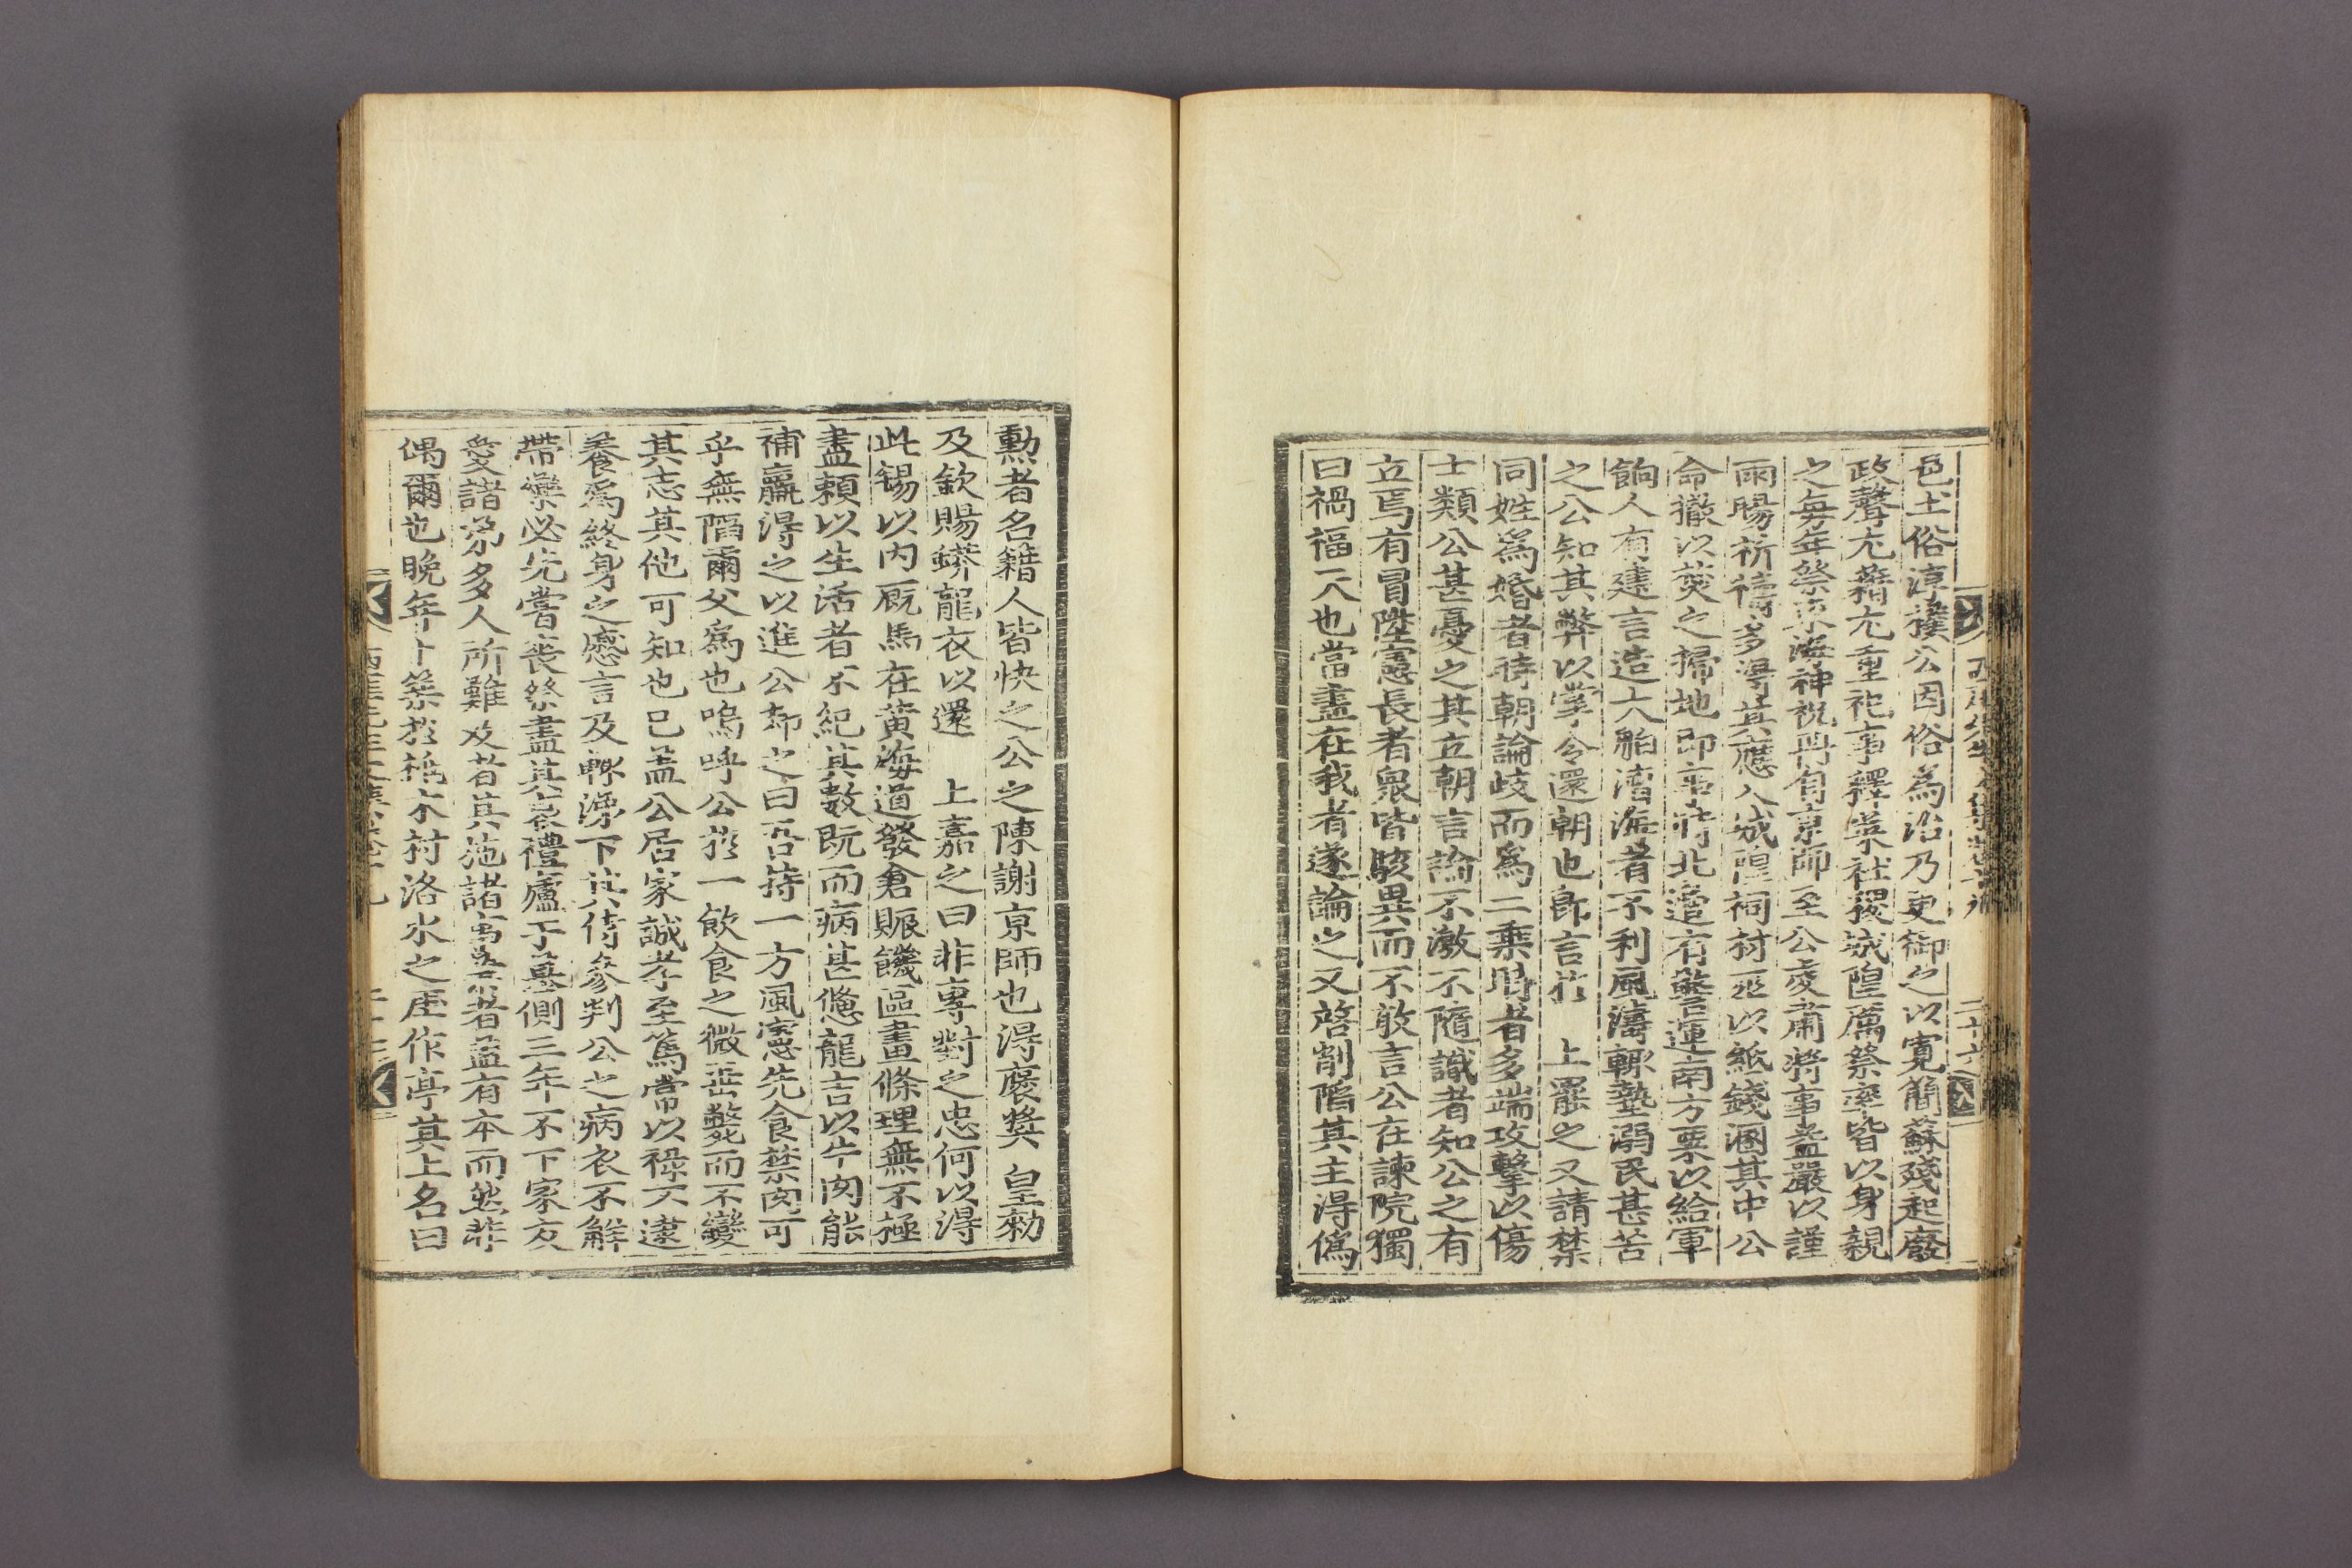 邑土俗淳襆公因俗為治乃更御之以寬簡蘇殘起廢
政聲尤藉尤重祀事釋奠社稷城隍厲祭率皆以身親
之每年祭東海神祝冊自京師至公虔肅將事益嚴以謹
雨暘祈禱多得其應八城隍祠材巫以紙錢溷其中公
命撤以焚之掃地即事時北邊有警運南方粟以給軍
餉人有建言造大船漕海者不利風濤輒墊溺民甚苦
之公知其弊以掌令還朝也即言於 上罷之又請禁
同姓為婚者時朝論歧而為二乘時者多端攻擊以傷
士類公甚憂之其立朝言論不激不隨識者知公之有
立焉有冒陞憲長者衆皆駭異而不敢言公在諫院獨
曰禍福天也當盡在我者遂論之又啓削陷其主得僞
二十六
勲者名籍人皆快之公之陳謝京師也得褒奬 皇勑
及欽賜蟒龍衣以還 上嘉之曰非專對之忠何以得
此錫以内厩馬在黄海道發倉賑饑區畫條理無不極
盡頼以生活者不紀其數既而病甚憊龍吉以牛肉能
補羸得之以進公却之曰吾待一方風憲先食禁肉可
乎無陷爾父為也嗚呼公於一飲食之微至斃而不變
其志其他可知也已盖公居家誠孝至篤常以祿不逮
養為終身之慼言及輒涕下其侍參判公之病衣不解
帶藥必先嘗喪祭盡其哀禮廬于墓側三年不下家友
愛諸弟多人所難及者其施諸寓寮者盖有本而然非
偶爾也晩年卜築於桃木村洛水之厓作亭其上名曰